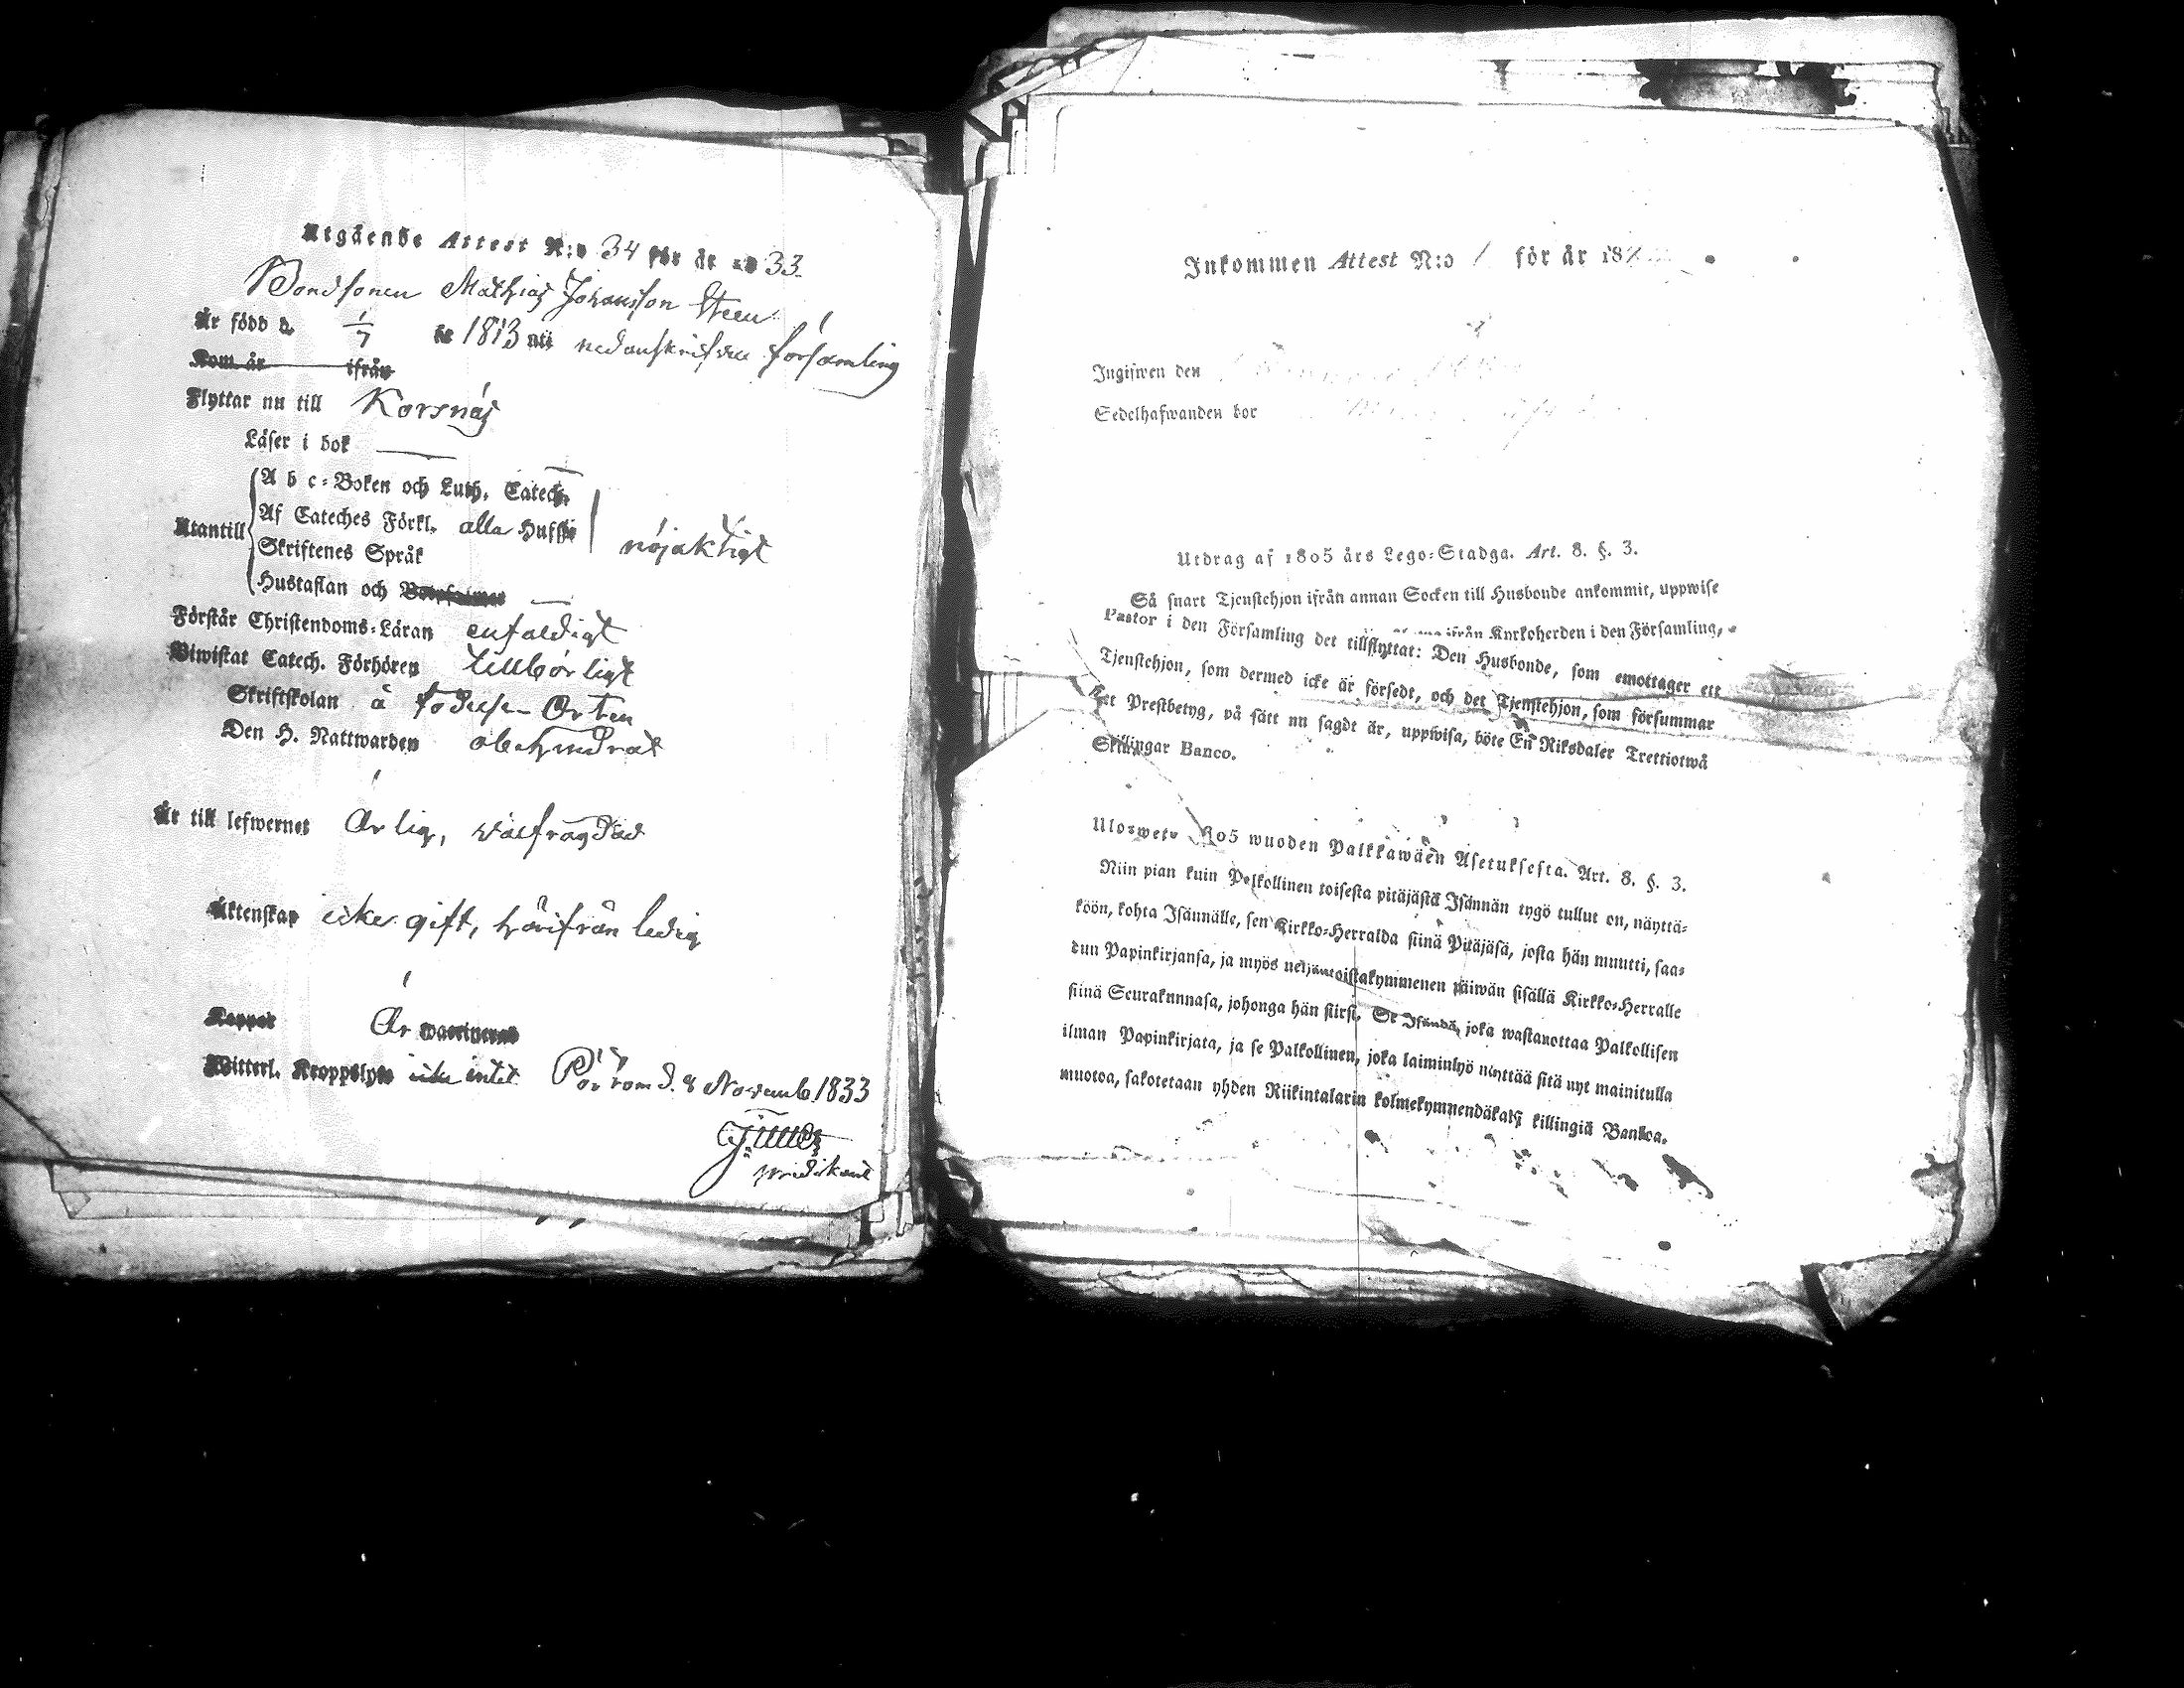 Utgående Attest N:o 34 för år 1833.
Bondsonen Mathias Johansson Steen
Är född d. 1/7 år 1813 uti nedanskrifne församling
Kom år ifrån
Flyttar nu till Korsnäs
Läser i bok
A b c-Boken och Luth. Catech.
Af Cateches Förkl. alla Hufst
Utantill nöjaktigt
Skriftenes Språk
Hustaflan och
Förstår Christendoms-Läran enfaldigt
Biwistat Catech. Förhören tillbörligt
Skriftskolan å födelse Orten
Den H. Nattwarden obehindrat
Är till lefwernet Ärlig, wälfrägdad
Äktenskap icke gift, härifrån ledig
Koppor Är vaccinerad
Witterl. Kroppslyte intet Pörtom d. 8 Novemb. 1833
Inkommen Attest N:o 1 för år 18
Ingifwen den
Sedelhafwanden bor
Utdrag af 1805 års Lego-Stadga. Art. 8. §. 3.
Så snart Tjenstehjon ifrån annan Socken till Husbonde ankommit, uppwise
ifrån Kyrkoherden i den Församling,
Pastor i den Församling det tillflyttat: Den Husbonde, som emottager ett
Tjenstehjon, som dermed icke är försedt, och det Tjenstehjon, som försummar
Prestbetyg, på sätt nu sagdt är, uppwisa, böte En Riksdaler Trettiotwå
Skillingar Banco.
1805 wuoden Palkkawäen Asetuksesta. Art. 8. §. 3.
Niin pian kuin Palkollinen toisesta pitäjästä Isännän tygö tullut on, näyttä-
köön, kohta Isännälle, sen Kirkko-Herralda siinä Pitäjäsä, josta hän muutti, saa-
dun Papinkirjansa, ja myös neljäntoistakymmenen päiwän sisällä Kirkko-Herralle
siinä Seurakunnasa, johonga hän siirsi. Se Isändä, joka wastanottaa Palkollisen
ilman Papinkirjata, ja se Palkollinen, joka laiminlyö näyttää sitä nyt mainitulla
muotoa, sakotetaan yhden Riikintalarin kolmekymmendäkaksi killingiä Bankoa.